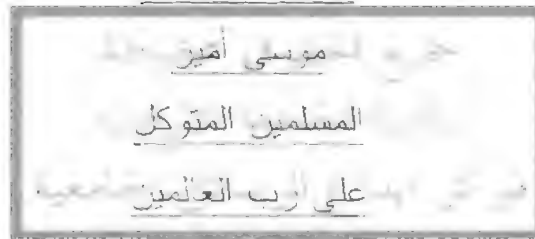 موسى أمير
المسلمين المتوكل
على رب العالمين